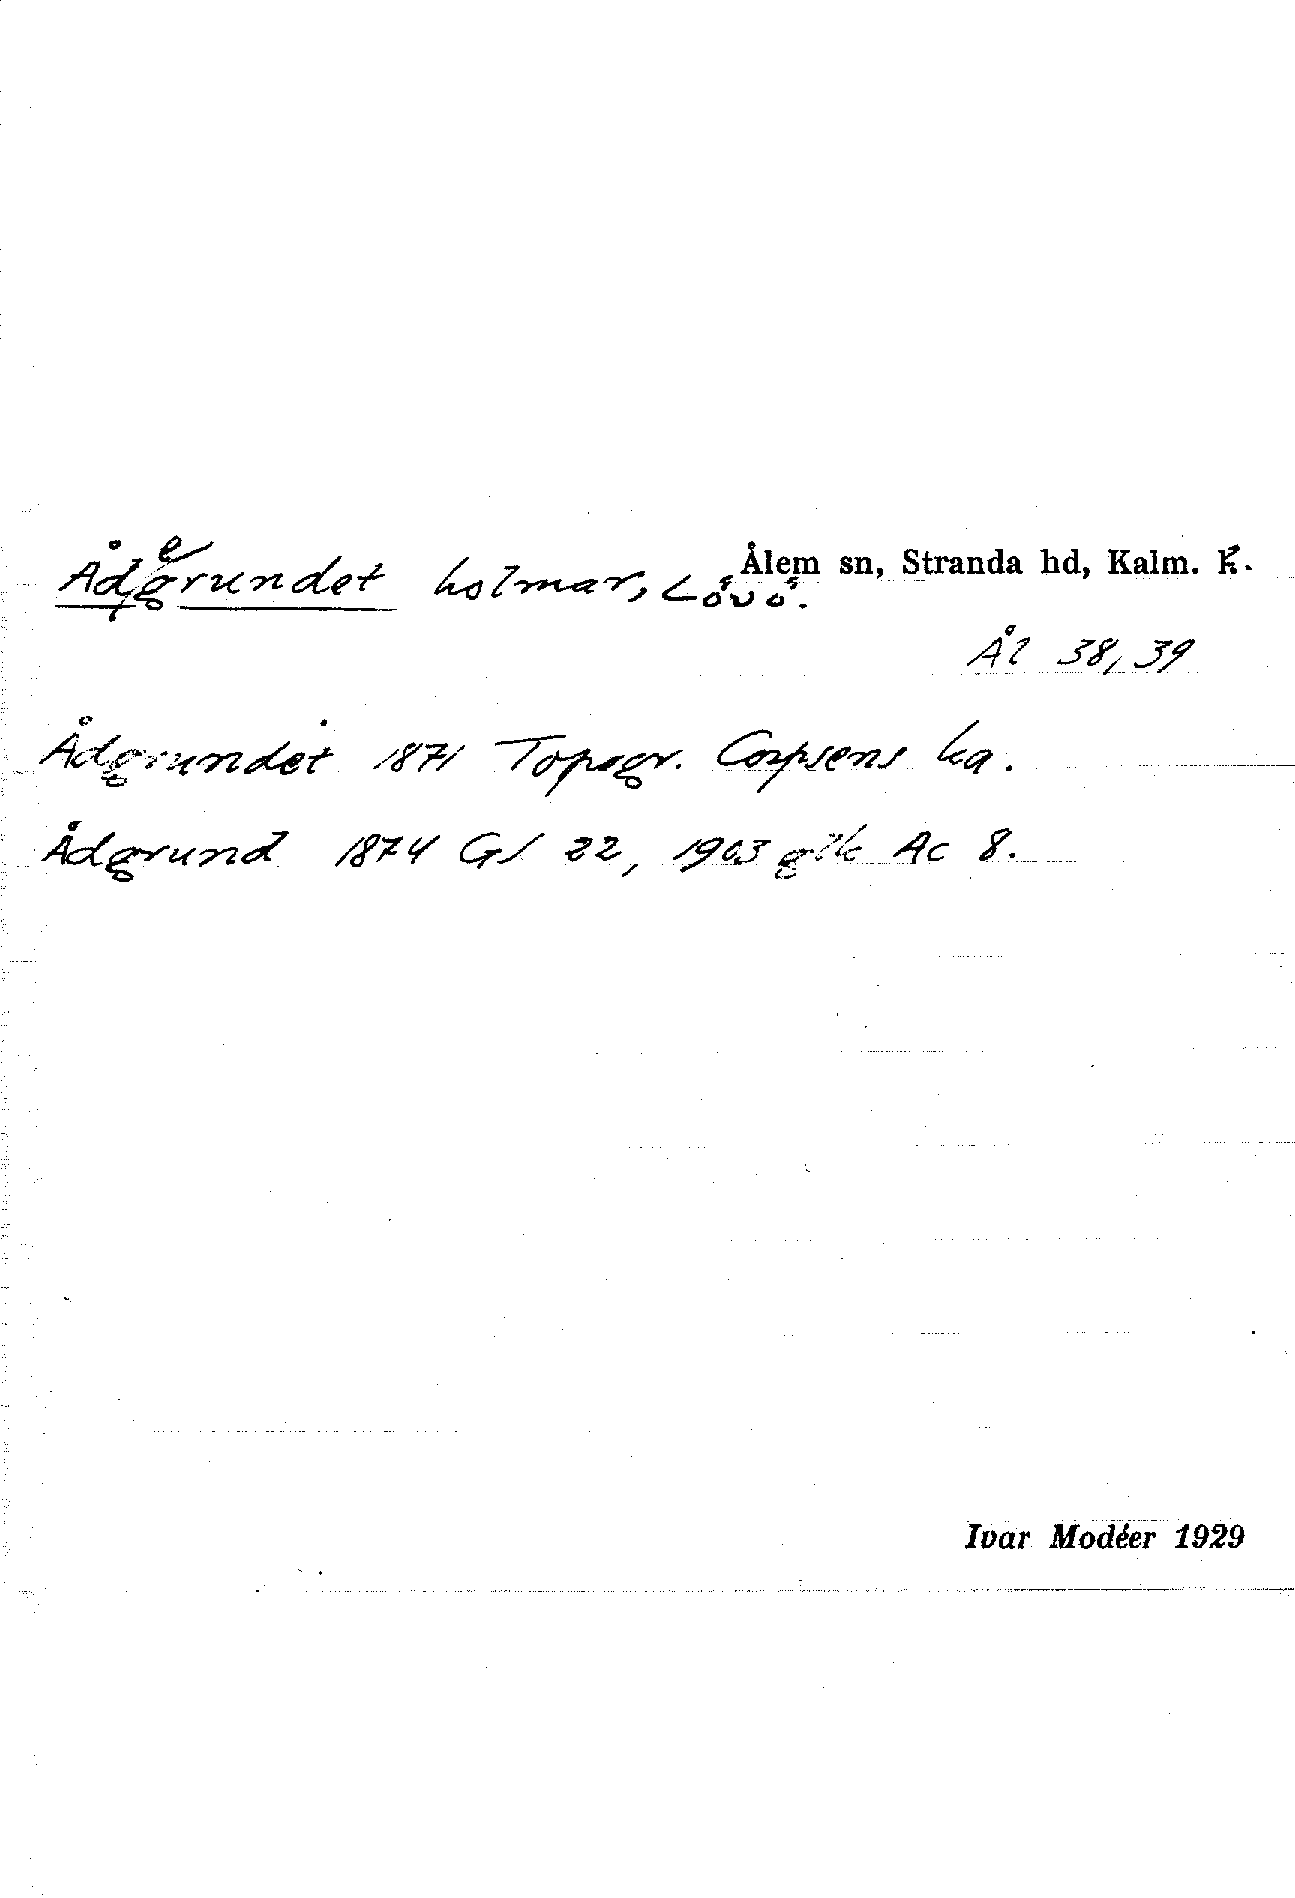 Ålem sn, Stranda hd, Kalm. l.
Ådegrundet holmar, Lövö.
Ål 38, 39
Ådgrundet 1871 Topogr. Corpsens ka.
Ådgrund 1874 GS 22, 1903 glk Ac 8.
Ivar Modéer 1929